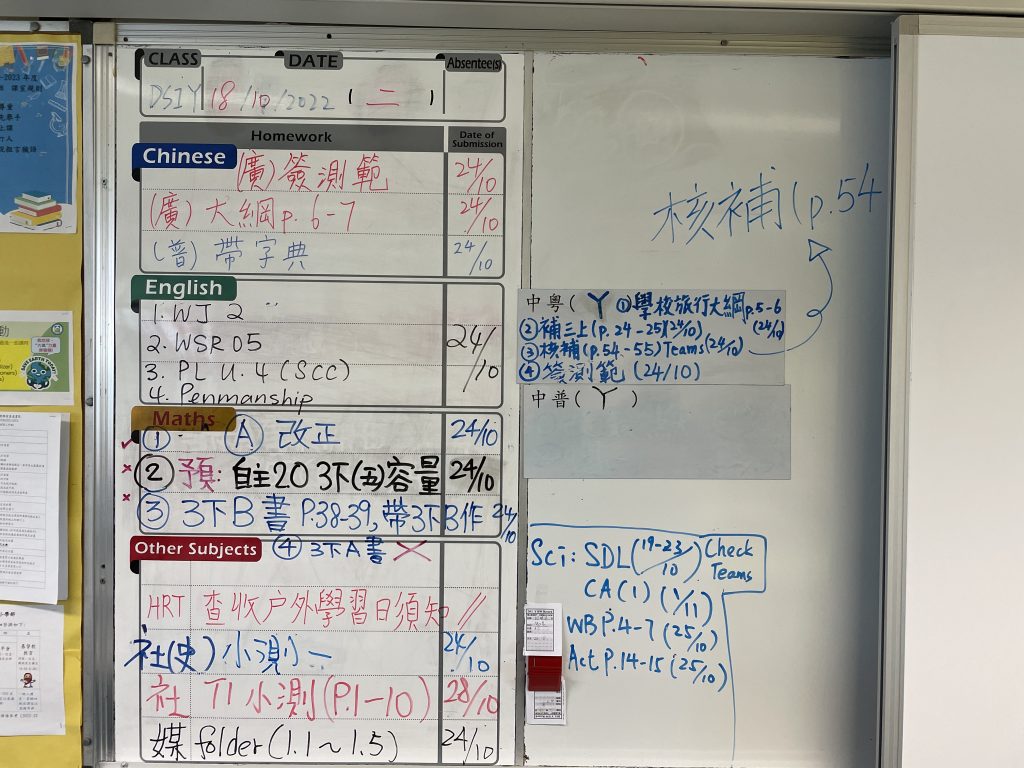 CLASS DATE Absentee(s)
DSIY 18/10/2022 (二)
Homework Date of Submission
Chinese
(廣) 簽測範 24/10
(廣) 大綱p. 6-7 24/10
(普) 帶字典 24/10
English
1. WJ 2
2. WSR 05 24/10
3. PL U. 4 (SCC)
4. Penmanship
Maths
① Ⓐ 改正 24/10
② 預: 自主20 3下(五)容量 24/10
③ 3下B書 P.38-39, 帶3下B作 24/10
Other Subjects ④ 3下A書 ×
HRT 查收户外學習日須知 //
社(史) 小測一 24/10
社 T1 小測(P.1-10) 28/10
媒 folder (1.1~1.5) 24/10
核補(p.54
中粵( Y ①學校旅行大綱p.5-6 (24/10)
②補三上(p.24-25)(24/10)
③核補(p.54-55)Teams(24/10)
④簽測範 (24/10)
中普( Y )
Sci: SDL(19-23/10) Check Teams
CA(1) (1/11)
WB P.4-7 (25/10)
Act P.14-15 (25/10)